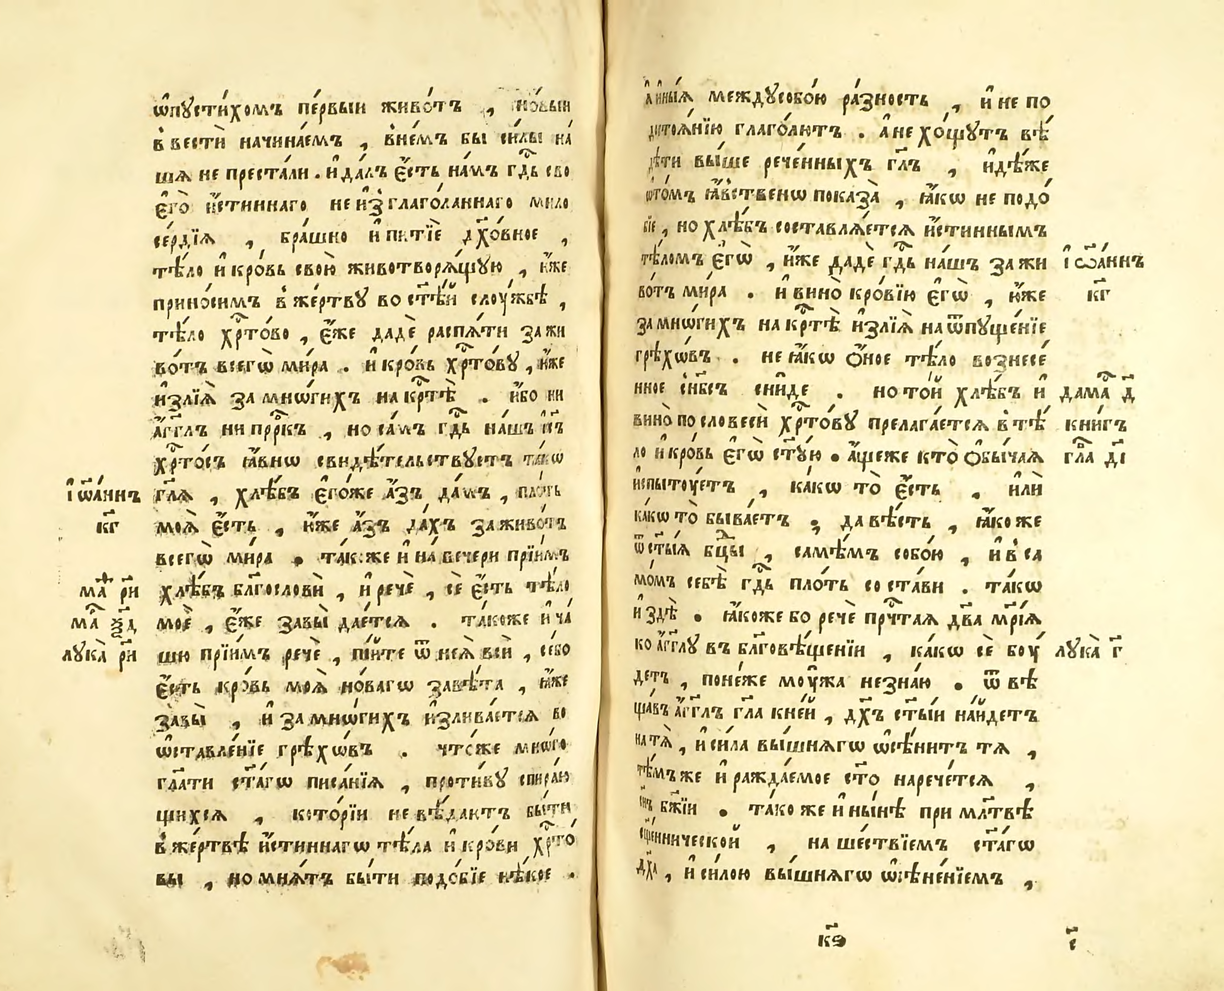 ѿпꙋсти́хомъ пе́рвыи живо́тъ , но́выи
в̾вестѝ начина́емъ , в̾не́мъ бы си́лы на́
шѧ не преста́ли . и҆ да́лъ є҆́сть на́мъ гдⷭ҇ь сво
є҆гѡ̀ и҆́стиннаго неи҆згл҃аго́ланнаго мило
се́рдїѧ , бра́шно и҆ питїѐ дх҃о́вное ,
тѣ́ло и҆ кро́вь свою̀ животворѧ́щꙋю , и҆́же
прино́симъ в̾же́ртвꙋ во ст҃ѣ́й слоу́жбѣ ,
тѣ́ло хрⷭ҇то́во , є҆́же дадѐ распѧ́ти за жи
во́тъ всегѡ̀ ми́ра . и҆ кро́вь хрⷭ҇то́вꙋ , ю҆́же
и҆злїѧ̀ за мнѡ́гихъ на крⷭ҇тѣ̀ . и҆́бо ни
а҆́гг҃лъ ни прⷪ҇ро́къ , но са́мъ гдⷭ҇ь на́шъ і҆с҃ъ
хрⷭ҇то́съ ꙗ҆́внѡ свидѣ́тельствꙋетъ та́кѡ
гл҃ѧ , хлѣ́бъ є҆го́же а҆́зъ да́мъ , пло́ть
моѧ̀ є҆́сть , ю҆́же а҆́зъ да́хъ за живо́тъ
всегѡ̀ ми́ра . та́коже и҆ на ве́чери прїи́мъ
хлѣ́бъ блгⷭ҇ословѝ , и҆ речѐ , сѐ є҆́сть тѣ́ло
моѐ , є҆́же за вы̀ дае́тсѧ . та́коже и҆ ча́
шꙋ прїи́мъ речѐ , пі́йте ѿ неѧ̀ всѝ , се́бо
є҆́сть кро́вь моѧ̀ но́вагѡ завѣ́та , ꙗ҆́же
за вы̀ , и҆ за мнѡ́гихъ и҆злива́етсѧ во
ѡ҆ставле́нїе грѣхѡ́въ . что́же мно́го
гл҃ати ст҃а́гѡ писа́нїѧ , проти́вꙋ спира́ю
щихсѧ , кото́рїи не вѣ́даютъ бы́ти
в̾же́ртвѣ и҆́стиннагѡ тѣ́ла и҆ кро́ви хрⷭ҇то́
вы , но мнѧ́тъ бы́ти подо́бїе нѣ́кое .
і҆ѡа́ннъ
к҃г
маⷴ҇ р҃и
маⷴ҇ ѯ҃д
лꙋка̀ р҃и
междꙋсобо́ю ра́зность , и҆ не по
достоѧ́нїю глаго́лютъ . а҆ не хо́щꙋтъ вѣ́
дѣти вы́ше рече́нныхъ гл҃ъ , и҆дѣ́же
ѡ҆то́мъ ꙗ҆́вственѡ показа̀ , ꙗ҆́кѡ не подо́
бїе , но хлѣ́бъ составлѧ́етсѧ и҆́стиннымъ
тѣ́ломъ є҆гѡ̀ , и҆́же дадѐ гдⷭ҇ь на́шъ за жи
во́тъ ми́ра . и҆ вино̀ кро́вїю є҆гѡ̀ , ю҆́же
за мнѡ́гихъ на крⷭ҇тѣ̀ и҆злїѧ̀ на ѿпꙋще́нїе
грѣхѡ́въ . не ꙗ҆́кѡ ѻ҆́ное тѣ́ло вознесе́
нное с̾нб҃съ сни́де . но то́й хлѣ́бъ и҆
вино̀ по словесѝ хрⷭ҇то́вꙋ прелага́етсѧ в̾тѣ́
ло и҆ кро́вь є҆гѡ̀ ст҃ꙋ́ю . а҆́щеже кто̀ ѻ҆бы́чаѧ
и҆спытоу́етъ , ка́кѡ то̀ є҆́сть . и҆лѝ
ка́кѡ то̀ быва́етъ ; да вѣ́сть , ꙗ҆́коже
ѿ ст҃ы́ѧ бцⷣы , самѣ́мъ собо́ю , и҆ в̾са
мо́мъ себѣ̀ гдⷭ҇ь пло́ть соста́ви . та́кѡ
и҆ здѣ̀ . ꙗ҆́коже бо речѐ прчⷭ҇таѧ два мр҃і́ѧ
ко а҆́гг҃лꙋ въ блг҃овѣ́щенїи , ка́кѡ сѐ боу́
детъ , поне́же моу́жа не зна́ю . ѿ вѣ
ща́въ а҆́гг҃лъ гл҃а к̾не́й , дх҃ъ ст҃ы́и на́йдетъ
на тѧ̀ , и҆ си́ла вы́шнѧгѡ ѡ҆сѣни́тъ тѧ ,
тѣ́мъже и҆ ражда́емое ст҃о нарече́тсѧ ,
сн҃ъ бж҃їи . та́коже и҆ ны́нѣ при мл҃твѣ
сщ҃е́ннической , наше́ствїемъ ст҃а́гѡ
дх҃а , и҆ си́лою вы́шнѧгѡ ѡ҆сѣне́нїемъ ,
і҆ѡа́ннъ
к҃г
дамаⷭ҇ д҃
кни́гъ
гл҃а д҃і
лꙋка̀ г҃
к҃ѳ
є҃